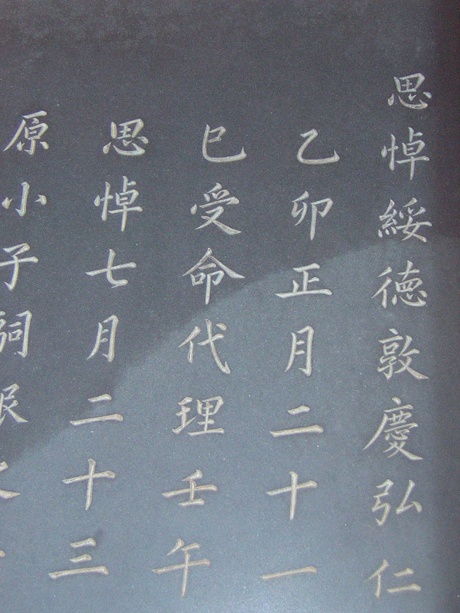 思悼綏德敦慶弘仁
乙卯正月二十一
巳受命代理壬午
思悼七月二十三
原小子